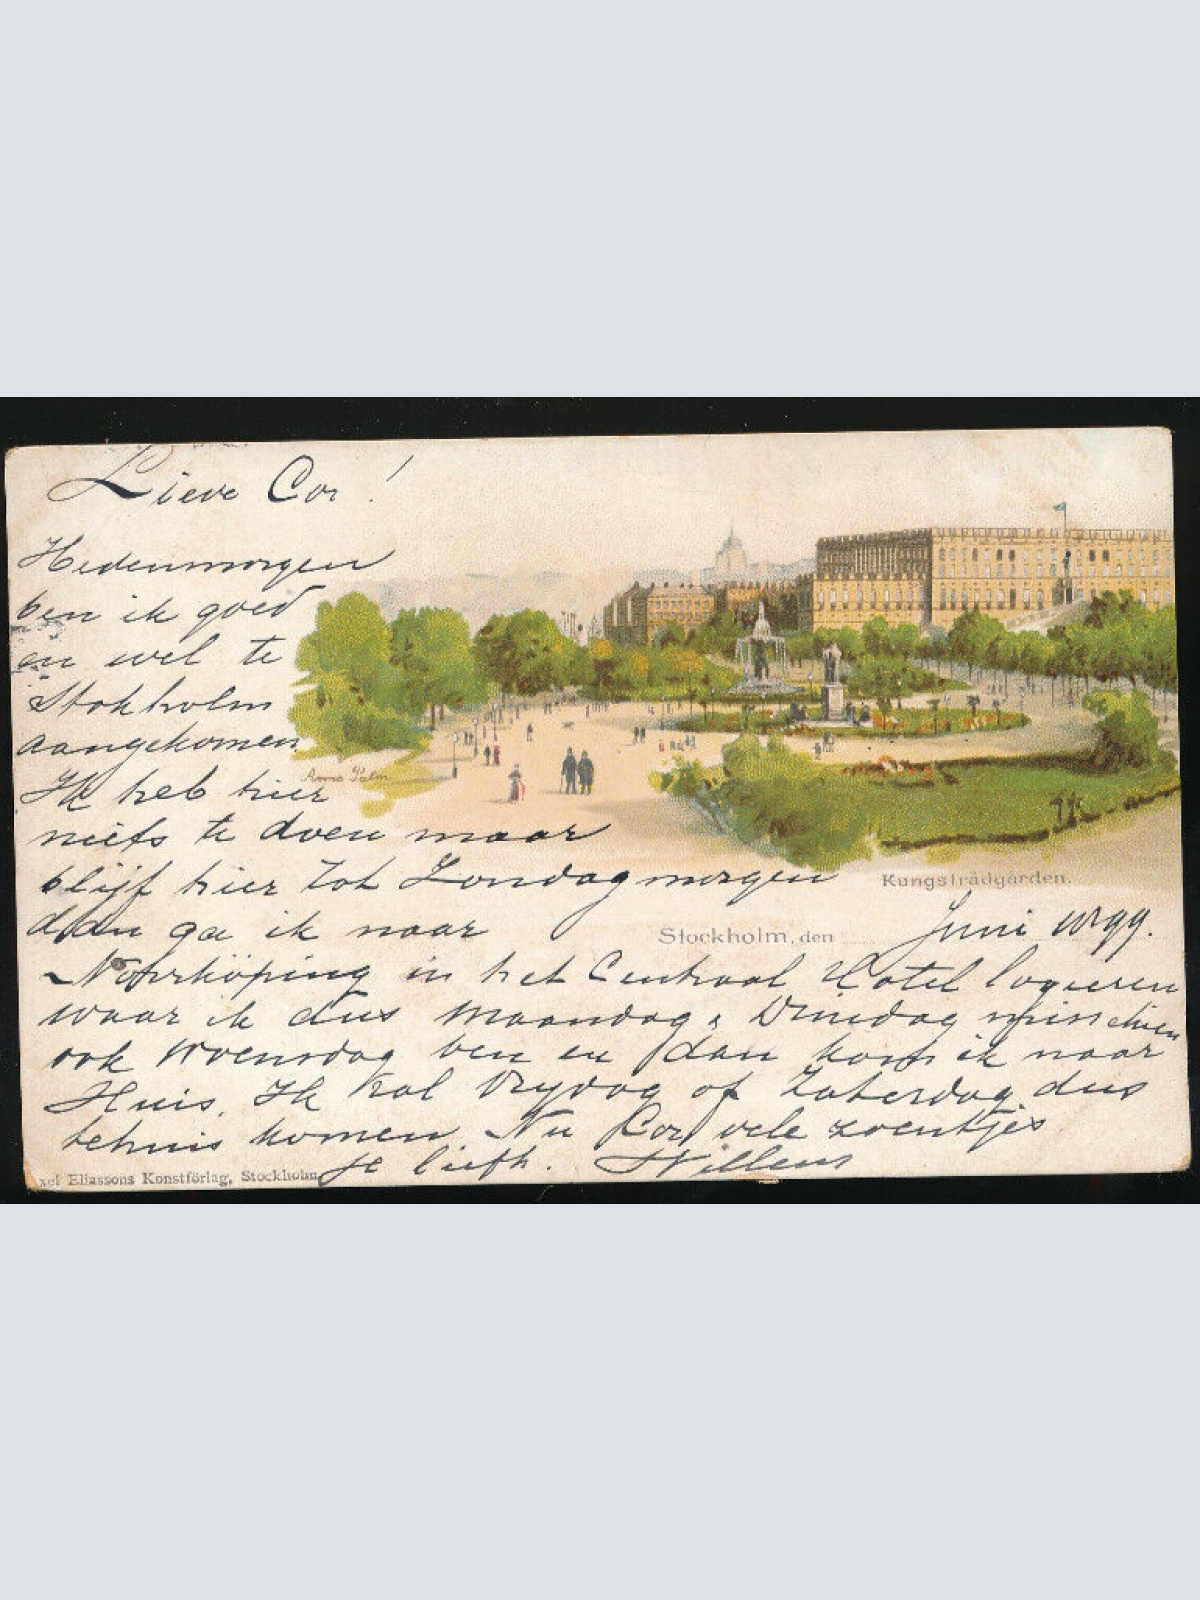 Lieve Cor!
Hedenmorgen
ben ik goed
en wel te
Stokholm
aangekomen
Anna Palm
Ik heb hier
niets te doen maar
blijf hier tot Zondagmorgen
Kungsträdgården.
dan ga ik naar
Stockholm, den
Juni 1899.
Norrköping in het Centraal Hotel logeeren
waar ik dus Maandag, Dinsdag misschien
ook Woensdag ben en dan kom ik naar
Huis. Ik zal Vrydag of Zaterdag dus
tehuis komen. Nu Cor vele zoentjes
je liefh. Willem
xel Eliassons Konstförlag, Stockholm